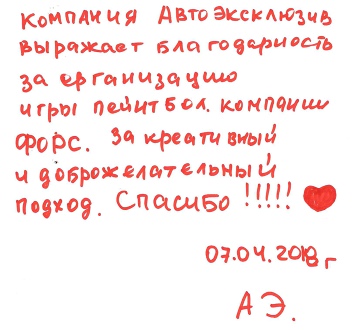 компания АвтоЭксклюзив
выражает благодарность
за организацию
игры пейнтбол. компании
Форс. За креативный
и доброжелательный
подход. Спасибо !!!!!
07.04.2018г
А Э.